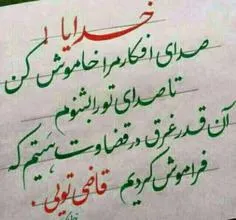 خدایا !
صدای افکار مرا خاموش کن
تا صدای تو را بشنوم
آن قدر غرق در قضاوت هستیم که
فراموش کردیم قاضی تویی .